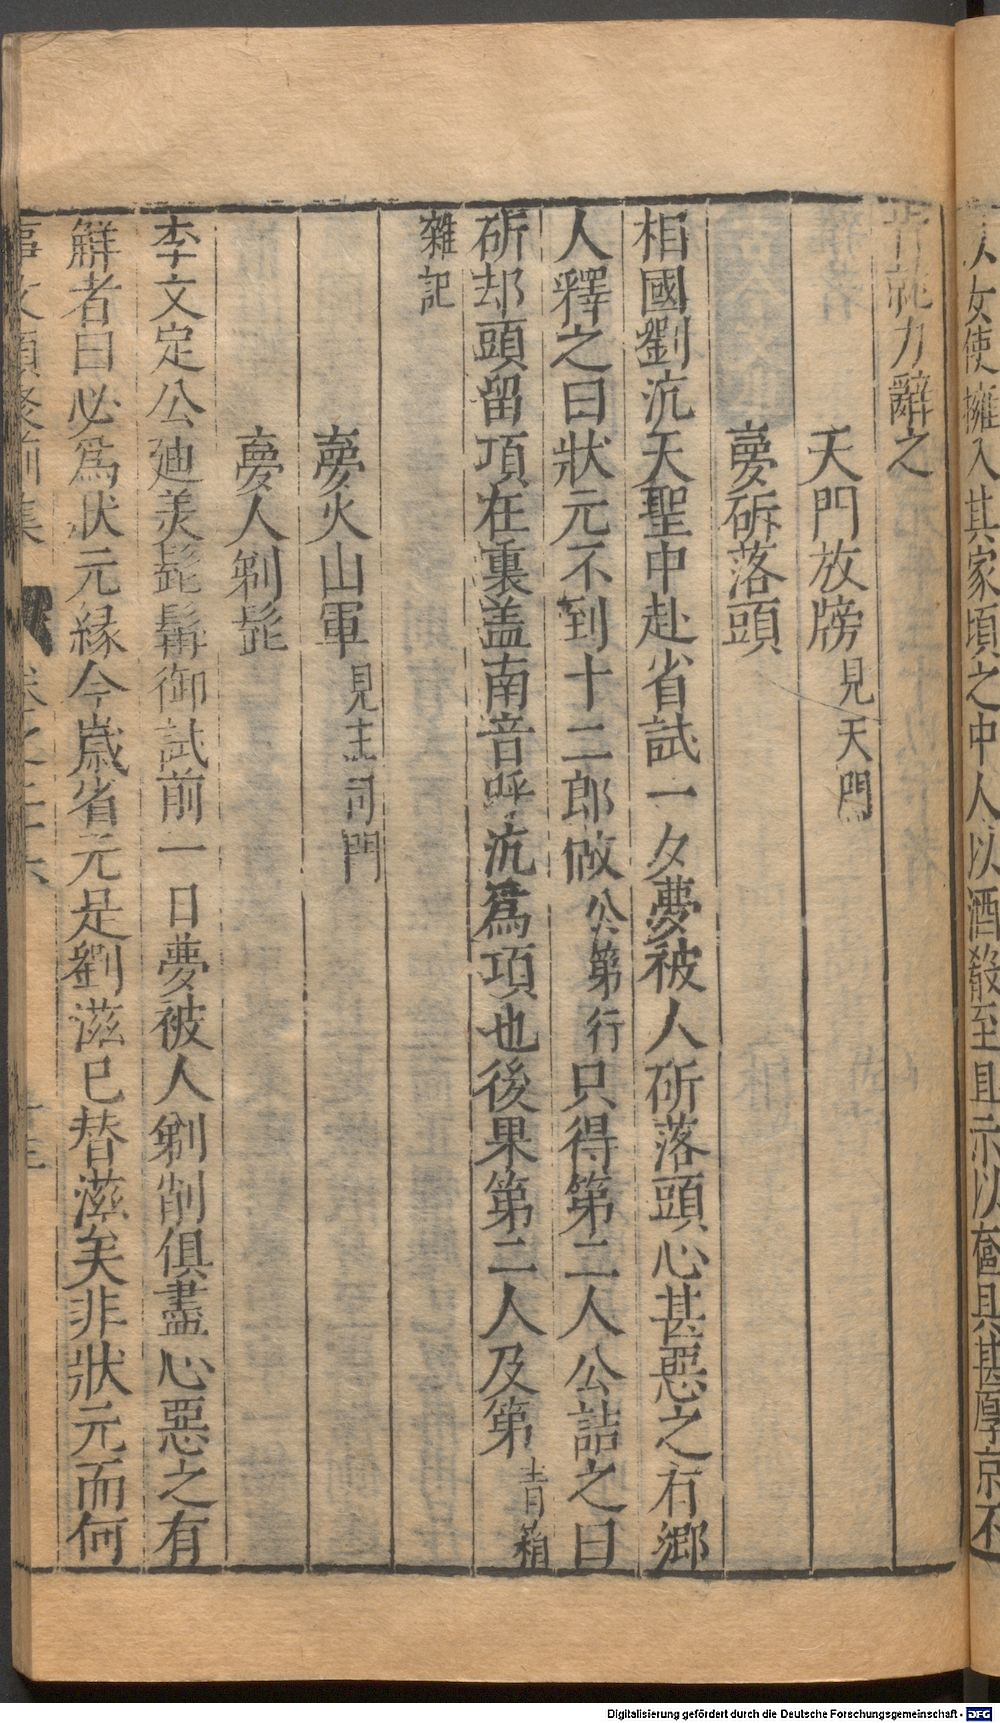 人女使擁入其家頃之中人以酒殽至且示以奩具甚厚京不
肯就力辭之
天門放牓見天門
夢斫落頭
相國劉沆天聖中赴省試一夕夢被人斫落頭心甚惡之有鄉
人釋之曰狀元不到十二郎做公第行只得第二人公詰之曰
斫却頭留項在裏盖南音呼沆爲項也後果第二人及第青箱
雜記
夢火山軍見主司門
夢人剃髭
李文定公廸羙髭髯御試前一日夢被人剃削俱盡心惡之有
解者曰必爲狀元縁今歲省元是劉滋已替滋矣非狀元而何
事文類聚前集 卷之二十六
Digitalisierung gefördert durch die Deutsche Forschungsgemeinschaft - DFG